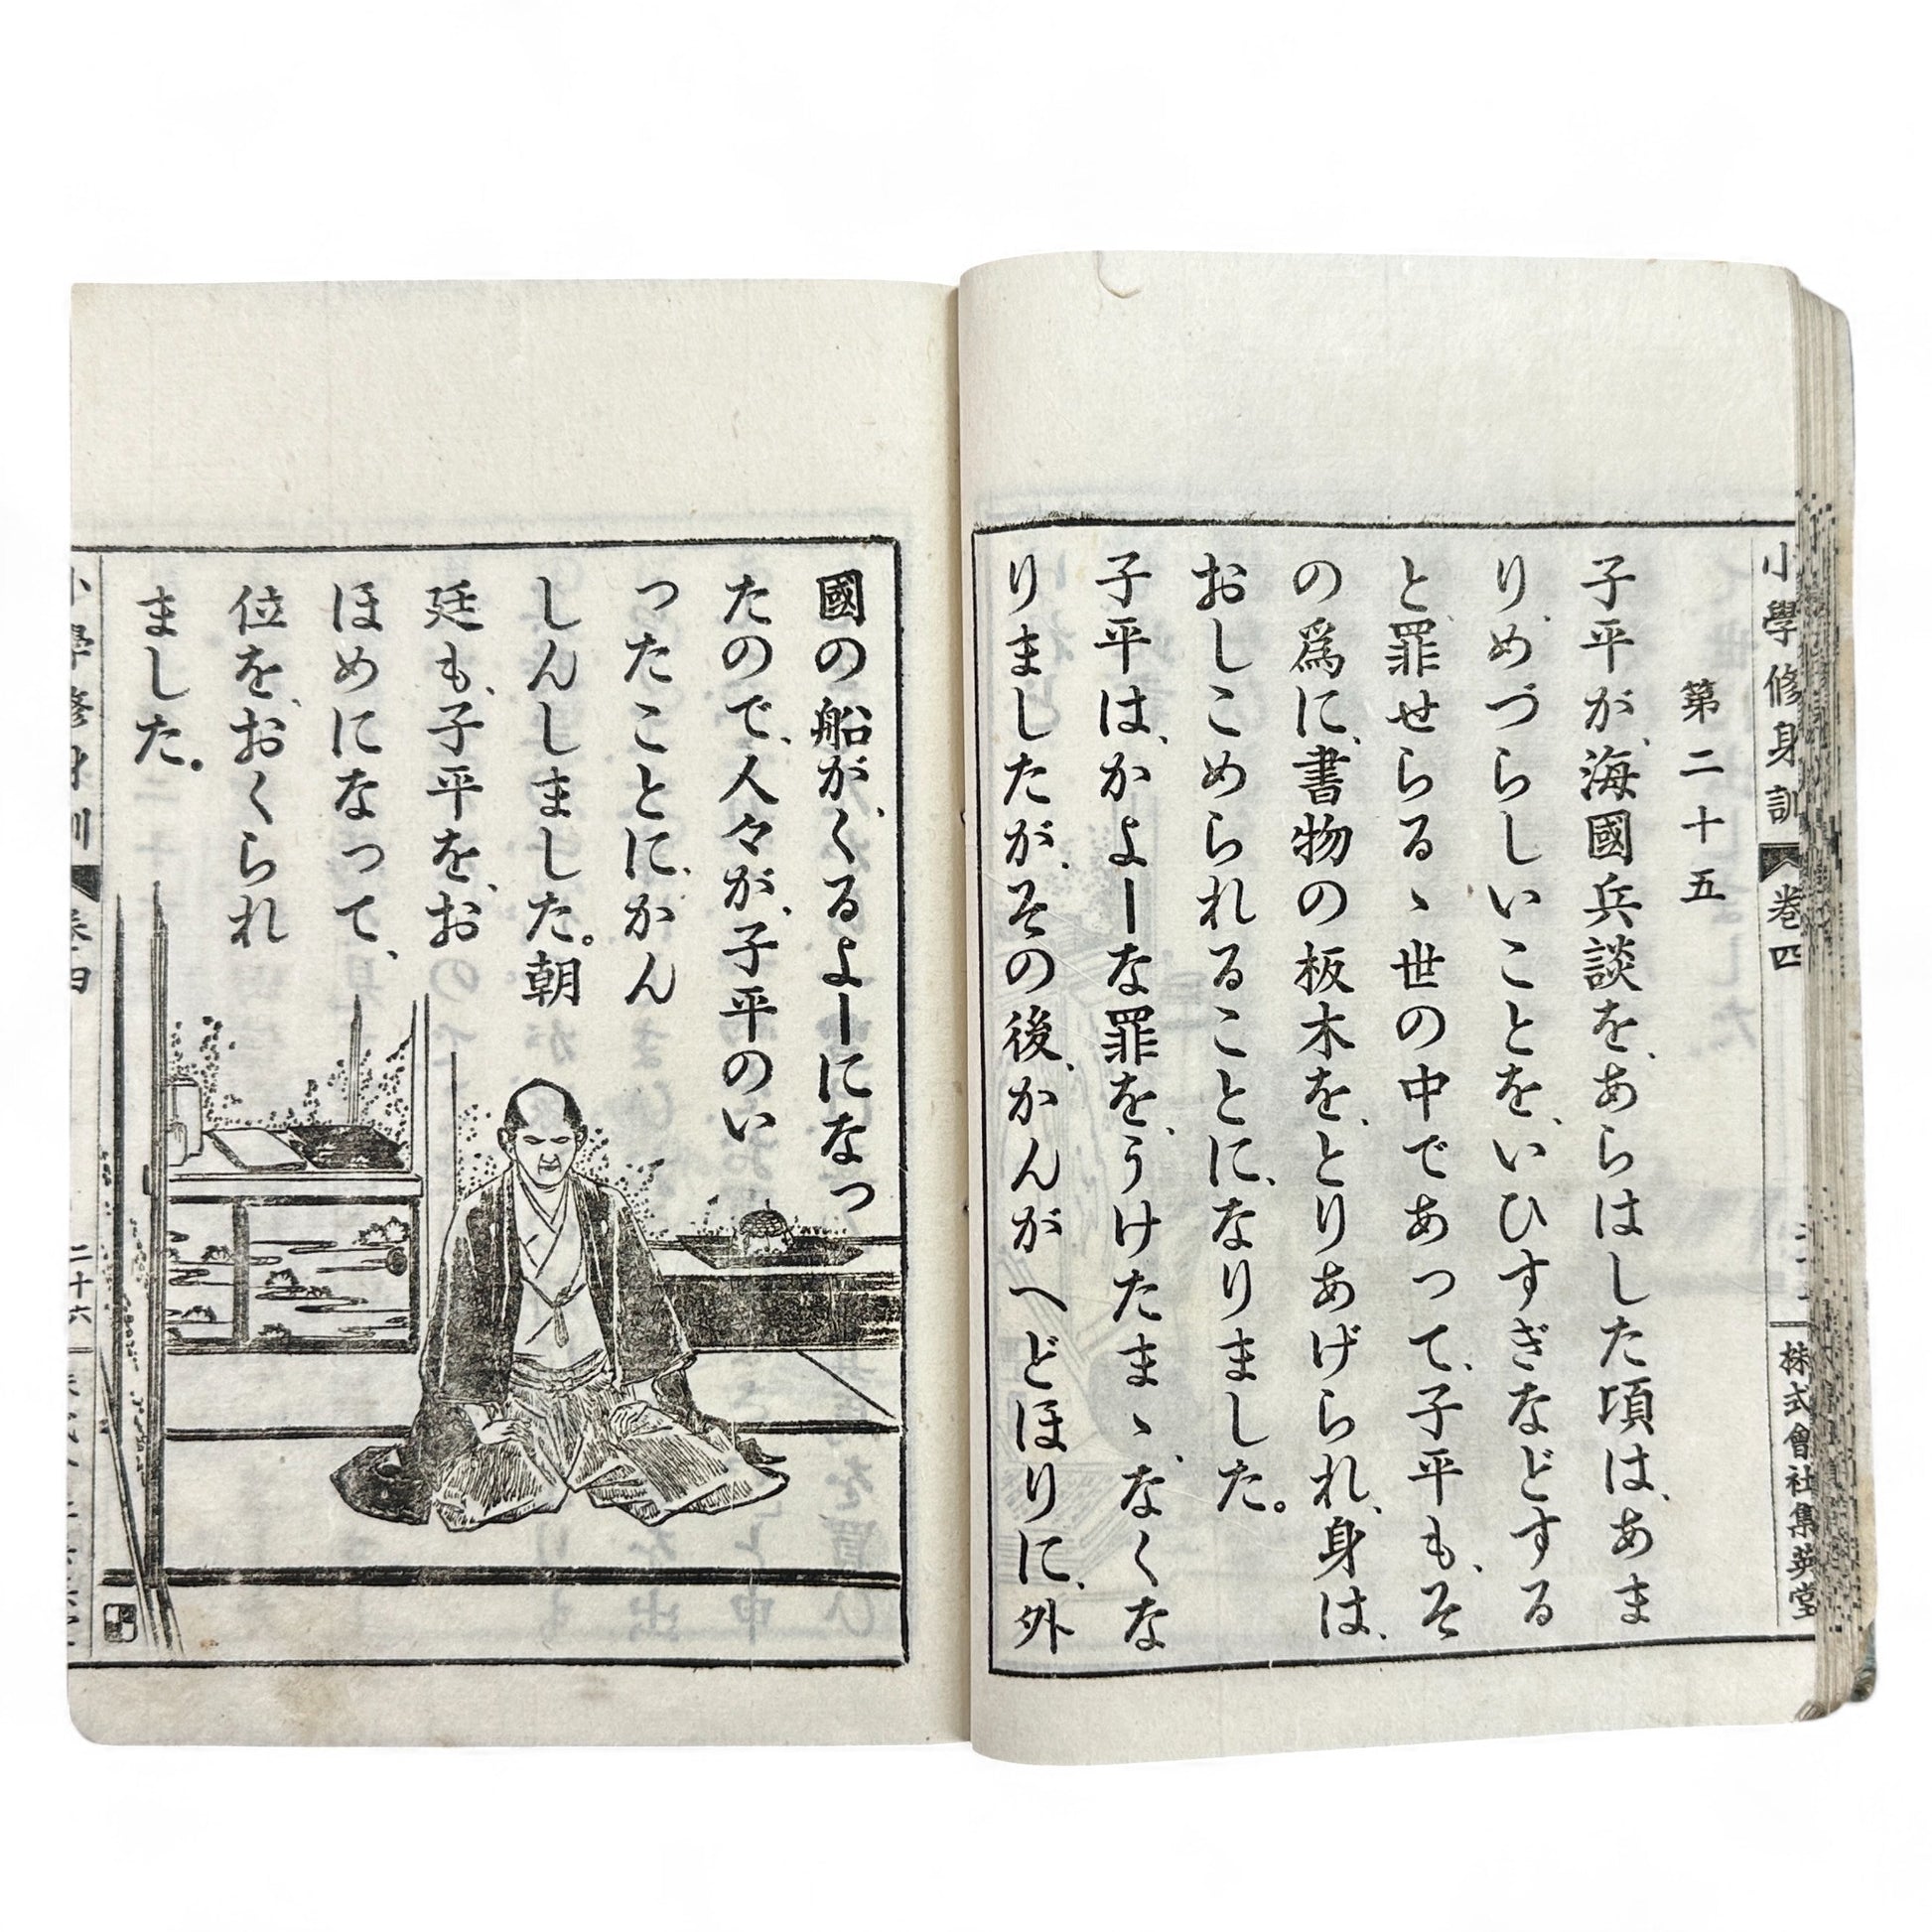 小學修身訓 卷四
株式會社集英堂
第二十五
子平が、海國兵談を、あらはした頃は、あま
り、めづらしいことを、いひすぎなどする
と、罪せらるゝ世の中であって、子平も、そ
の爲に、書物の板木を、とりあげられ、身は、
おしこめられることに、なりました。
子平は、かよーな罪を、うけたまゝ、なくな
りましたが、その後、かんがへどほりに、外
國の船が、くるよーになっ
たので、人々が、子平のい
ったことに、かん
しんしました。朝
廷も、子平を、お
ほめになって、
位を、おくられ
ました。
小學修身訓 卷四
二十六